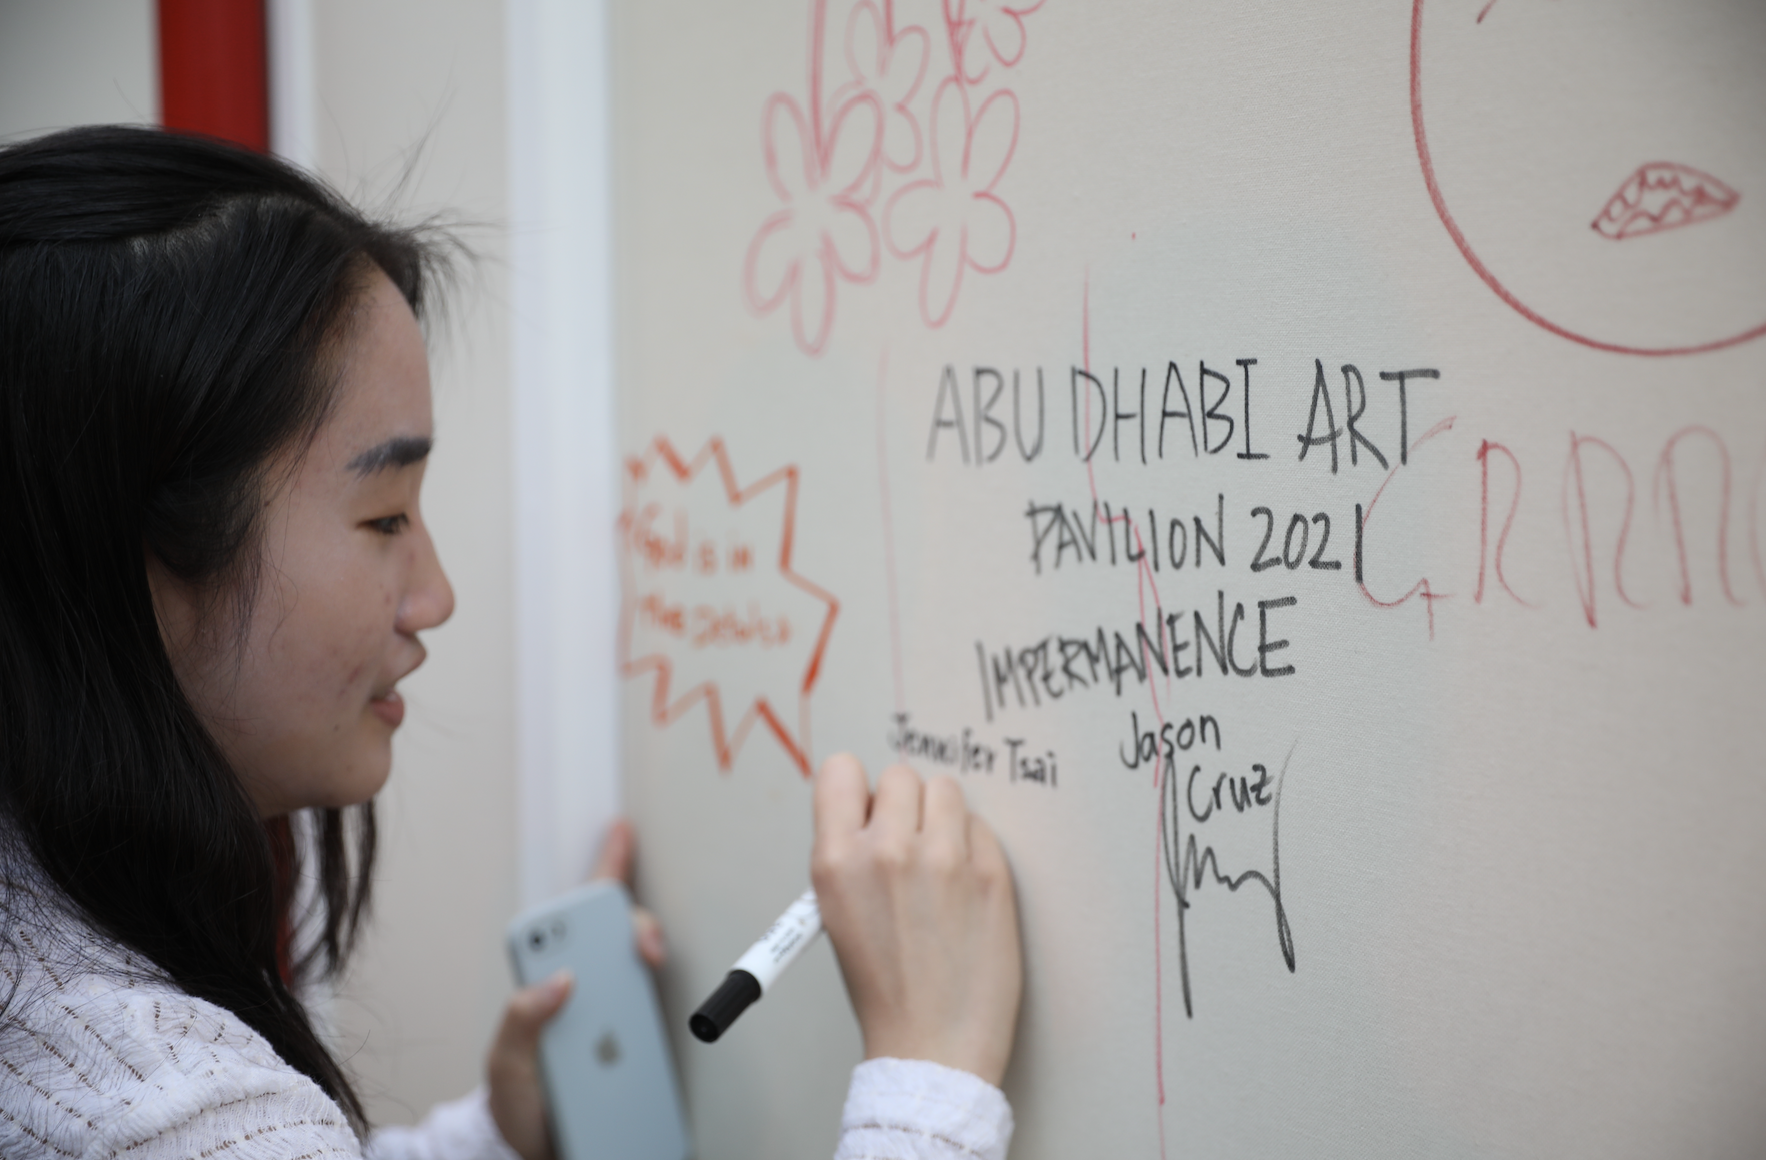 ABU DHABI ART
PAVILION 2021
IMPERMANENCE
Jennifer Tsai
Jason
Cruz
God is in
the Details